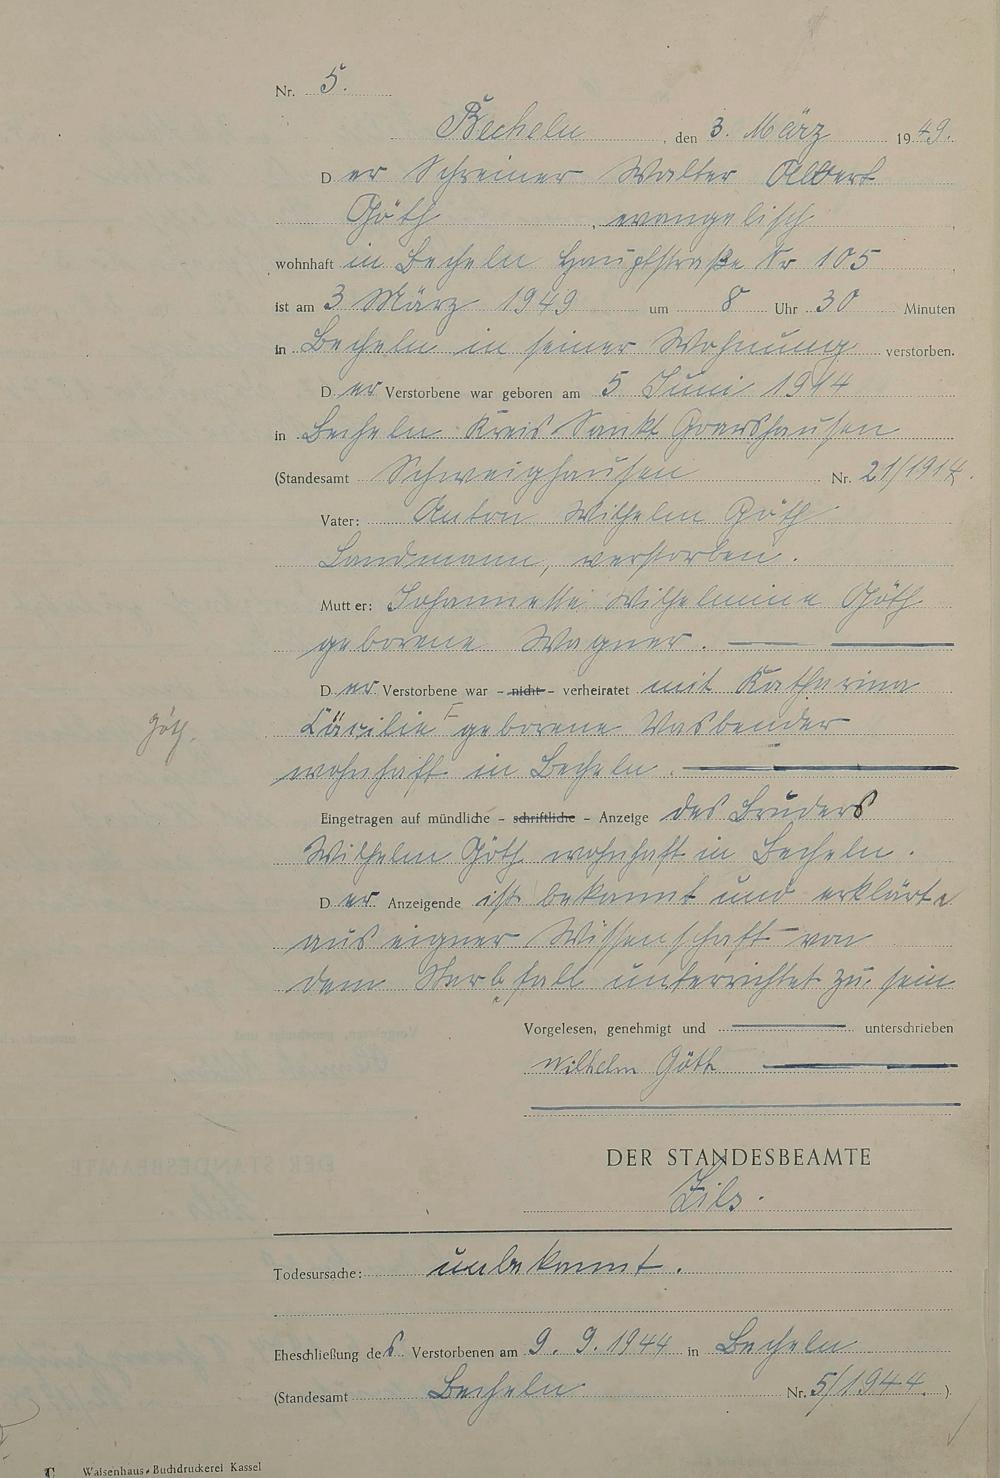 Nr. 5.
Becheln, den 3. März 1949.
Der Schreiner Walter Albert
Göth, evangelisch,
wohnhaft in Becheln Hauptstraße Nr 105,
ist am 3 März 1949 um 8 Uhr 30 Minuten
in Becheln in seiner Wohnung verstorben.
Der Verstorbene war geboren am 5 Juni 1914
in Becheln Kreis Sankt Goarshausen
(Standesamt Schweighausen Nr. 21/1914.
Vater: Anton Wilhelm Göth
Landmann, verstorben.
Mutter: Johannette Wilhelmine Göth
geborene Wagner.
Der Verstorbene war - nicht - verheiratet mit Katharina
Cäcilie geborene Wasbender
Göth.
wohnhaft in Becheln.
Eingetragen auf mündliche - schriftliche - Anzeige des Bruders
Wilhelm Göth wohnhaft in Becheln.
Der Anzeigende ist bekannt und erklärte
aus eigner Wissenschaft von
dem Sterbfall unterrichtet zu sein
Vorgelesen, genehmigt und unterschrieben
Wilhelm Göth
DER STANDESBEAMTE
Zils.
Todesursache: unbekannt.
Eheschließung des Verstorbenen am 9. 9. 1944 in Becheln
(Standesamt Becheln Nr. 5/1944.)
C Waisenhaus-Buchdruckerei Kassel